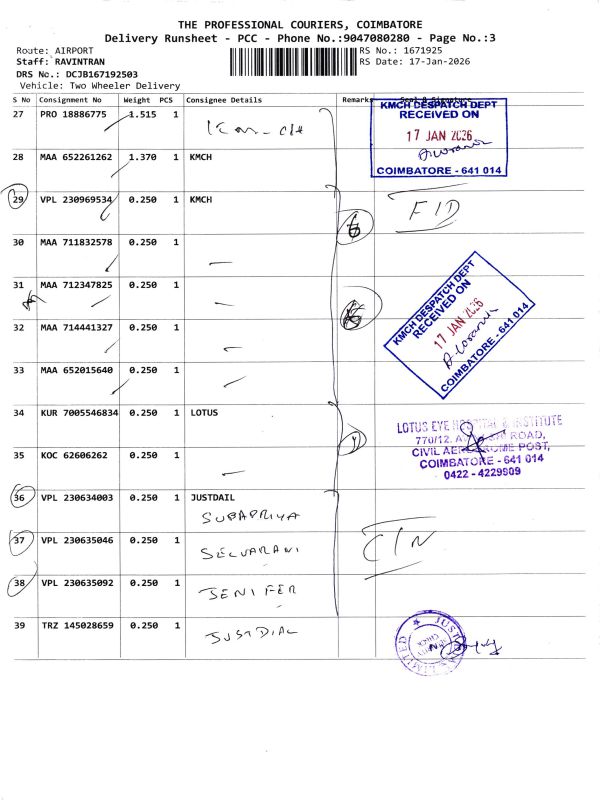 THE PROFESSIONAL COURIERS, COIMBATORE
Delivery Runsheet - PCC - Phone No.:9047080280 - Page No.:3
Route: AIRPORT
RS No.: 1671925
Staff: RAVINTRAN
RS Date: 17-Jan-2026
DRS No.: DCJB167192503
Vehicle: Two Wheeler Delivery
S No Consignment No Weight PCS Consignee Details Remarks
27 PRO 18886775 1.515 1
KMCH DESPATCH DEPT
RECEIVED ON
17 JAN 2026
COIMBATORE - 641 014
28 MAA 652261262 1.370 1 KMCH
29 VPL 230969534 0.250 1 KMCH
30 MAA 711832578 0.250 1
31 MAA 712347825 0.250 1
KMCH DESPATCH DEPT
RECEIVED ON
17 JAN 2026
COIMBATORE - 641 014
32 MAA 714441327 0.250 1
33 MAA 652015640 0.250 1
34 KUR 7005546834 0.250 1 LOTUS
LOTUS EYE HOSPITAL & INSTITUTE
770/12, ROAD,
CIVIL AERODROME POST,
COIMBATORE - 641 014
0422 - 4229909
35 KOC 62606262 0.250 1
36 VPL 230634003 0.250 1 JUSTDAIL
SUBAPRIYA
37 VPL 230635046 0.250 1
SELVARANI
38 VPL 230635092 0.250 1
JENIFER
39 TRZ 145028659 0.250 1
JUSTDIAL